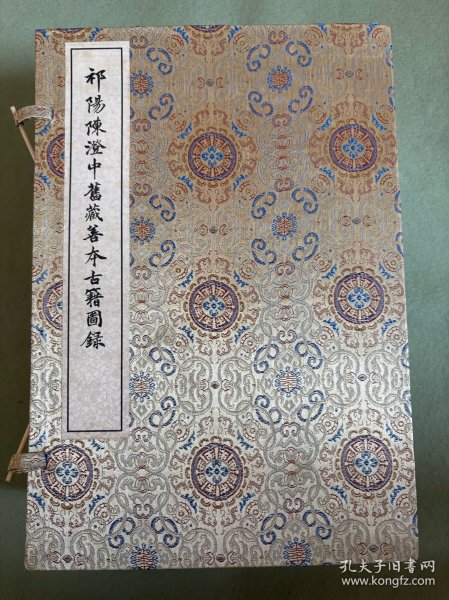 祁陽陳澄中舊藏善本古籍圖録
孔夫子旧书网
www.kongfz.com